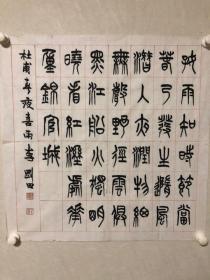 好雨知時節當
春乃發生隨風
潛入夜潤物細
無聲野徑雲俱
黑江船火獨明
曉看紅濕處花
重錦官城
杜甫春夜喜雨 李國田